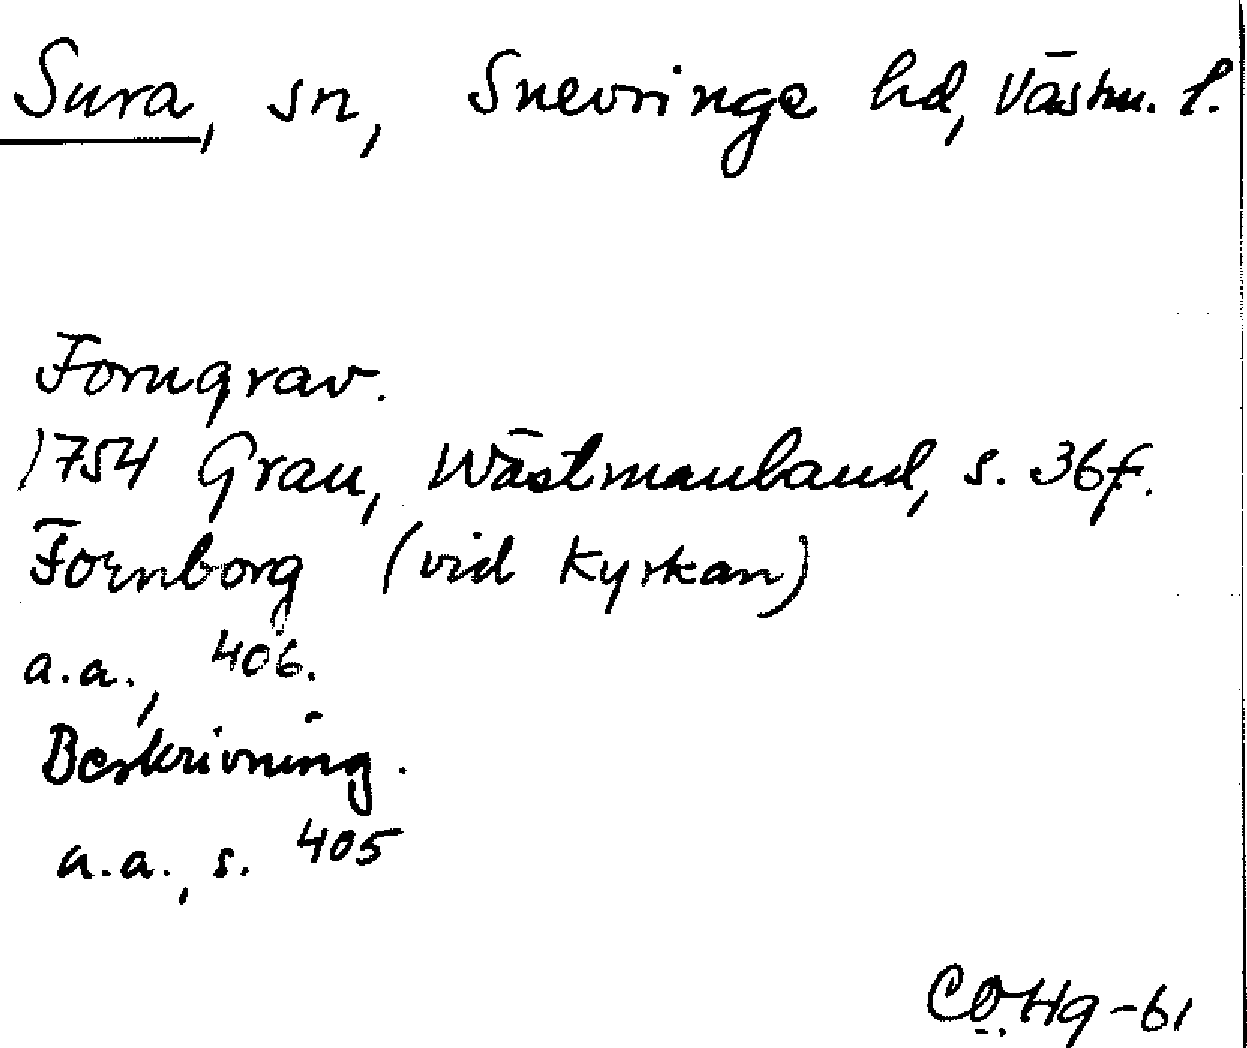 Sura, sn, Snevringe hd, Västm. l.
Forngrav.
1754 Grau, Wästmanland, s. 36f.
Fornborg (vid kyrkan)
a.a., 406.
Beskrivning.
a.a., s. 405
CÖHg-61